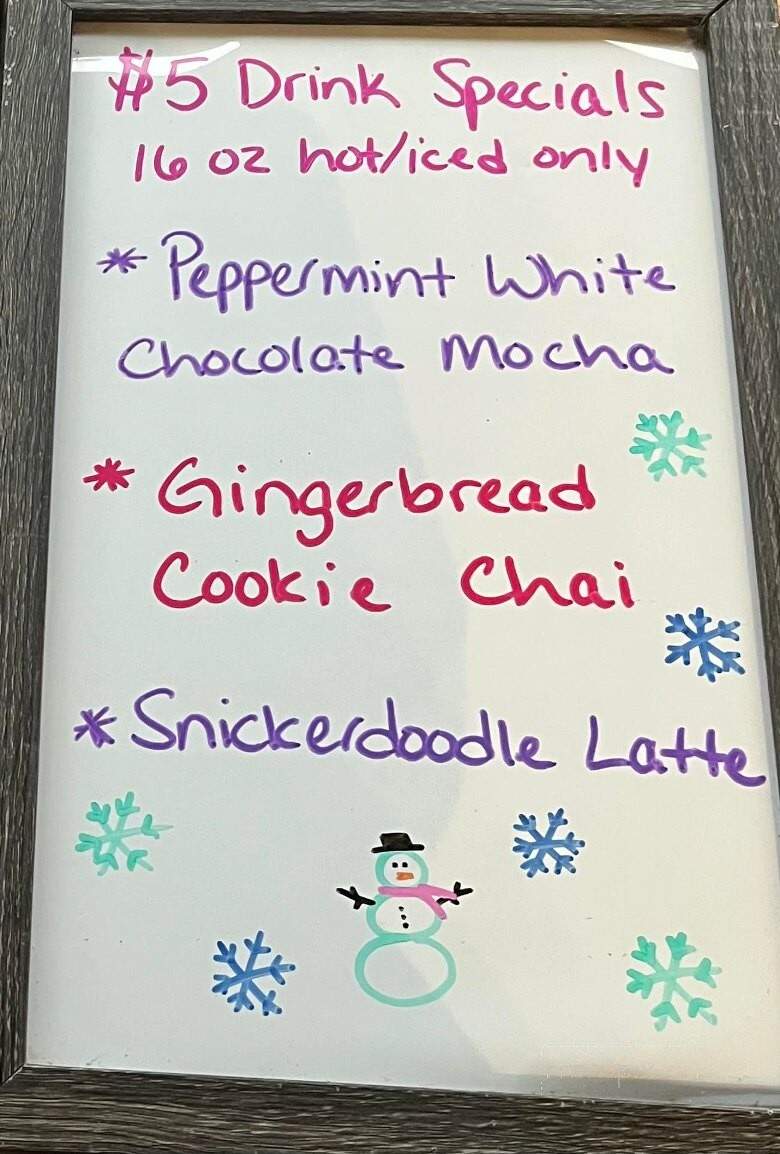 $5 Drink Specials
16 oz hot/iced only
* Peppermint White
Chocolate Mocha
* Gingerbread
Cookie Chai
* Snickerdoodle Latte